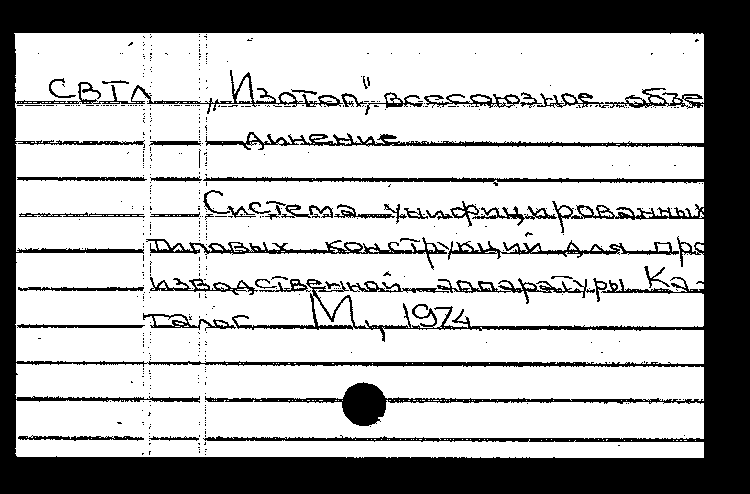 СВТЛ „Изотоп", всесоюзное объе
динение
Система унифицированных
типовых конструкций для про
изводственной аппаратуры Ка-
талог М., 1974